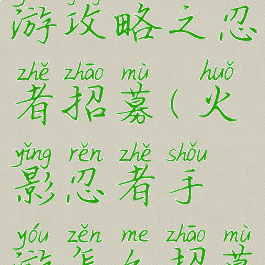 游攻略之忍
zhě zhāo mù huǒ
者招募(火
yǐng rěn zhě shǒu
影忍者手
yóu zěn me zhāo mù
游怎么招募